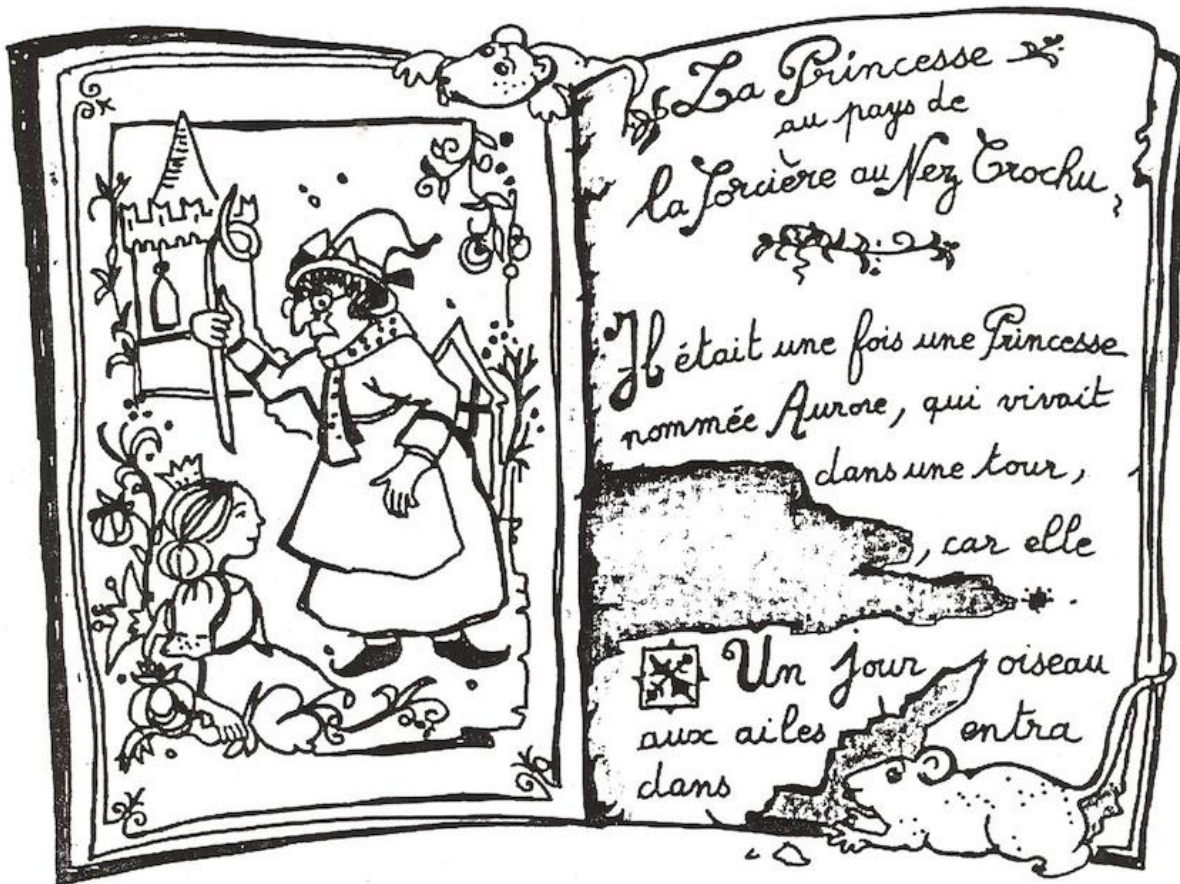 La Princesse
au pays de
la Sorcière au Nez Crochu
Il était une fois une Princesse
nommée Aurore, qui vivait
dans une tour,
, car elle
Un jour oiseau
aux ailes entra
dans